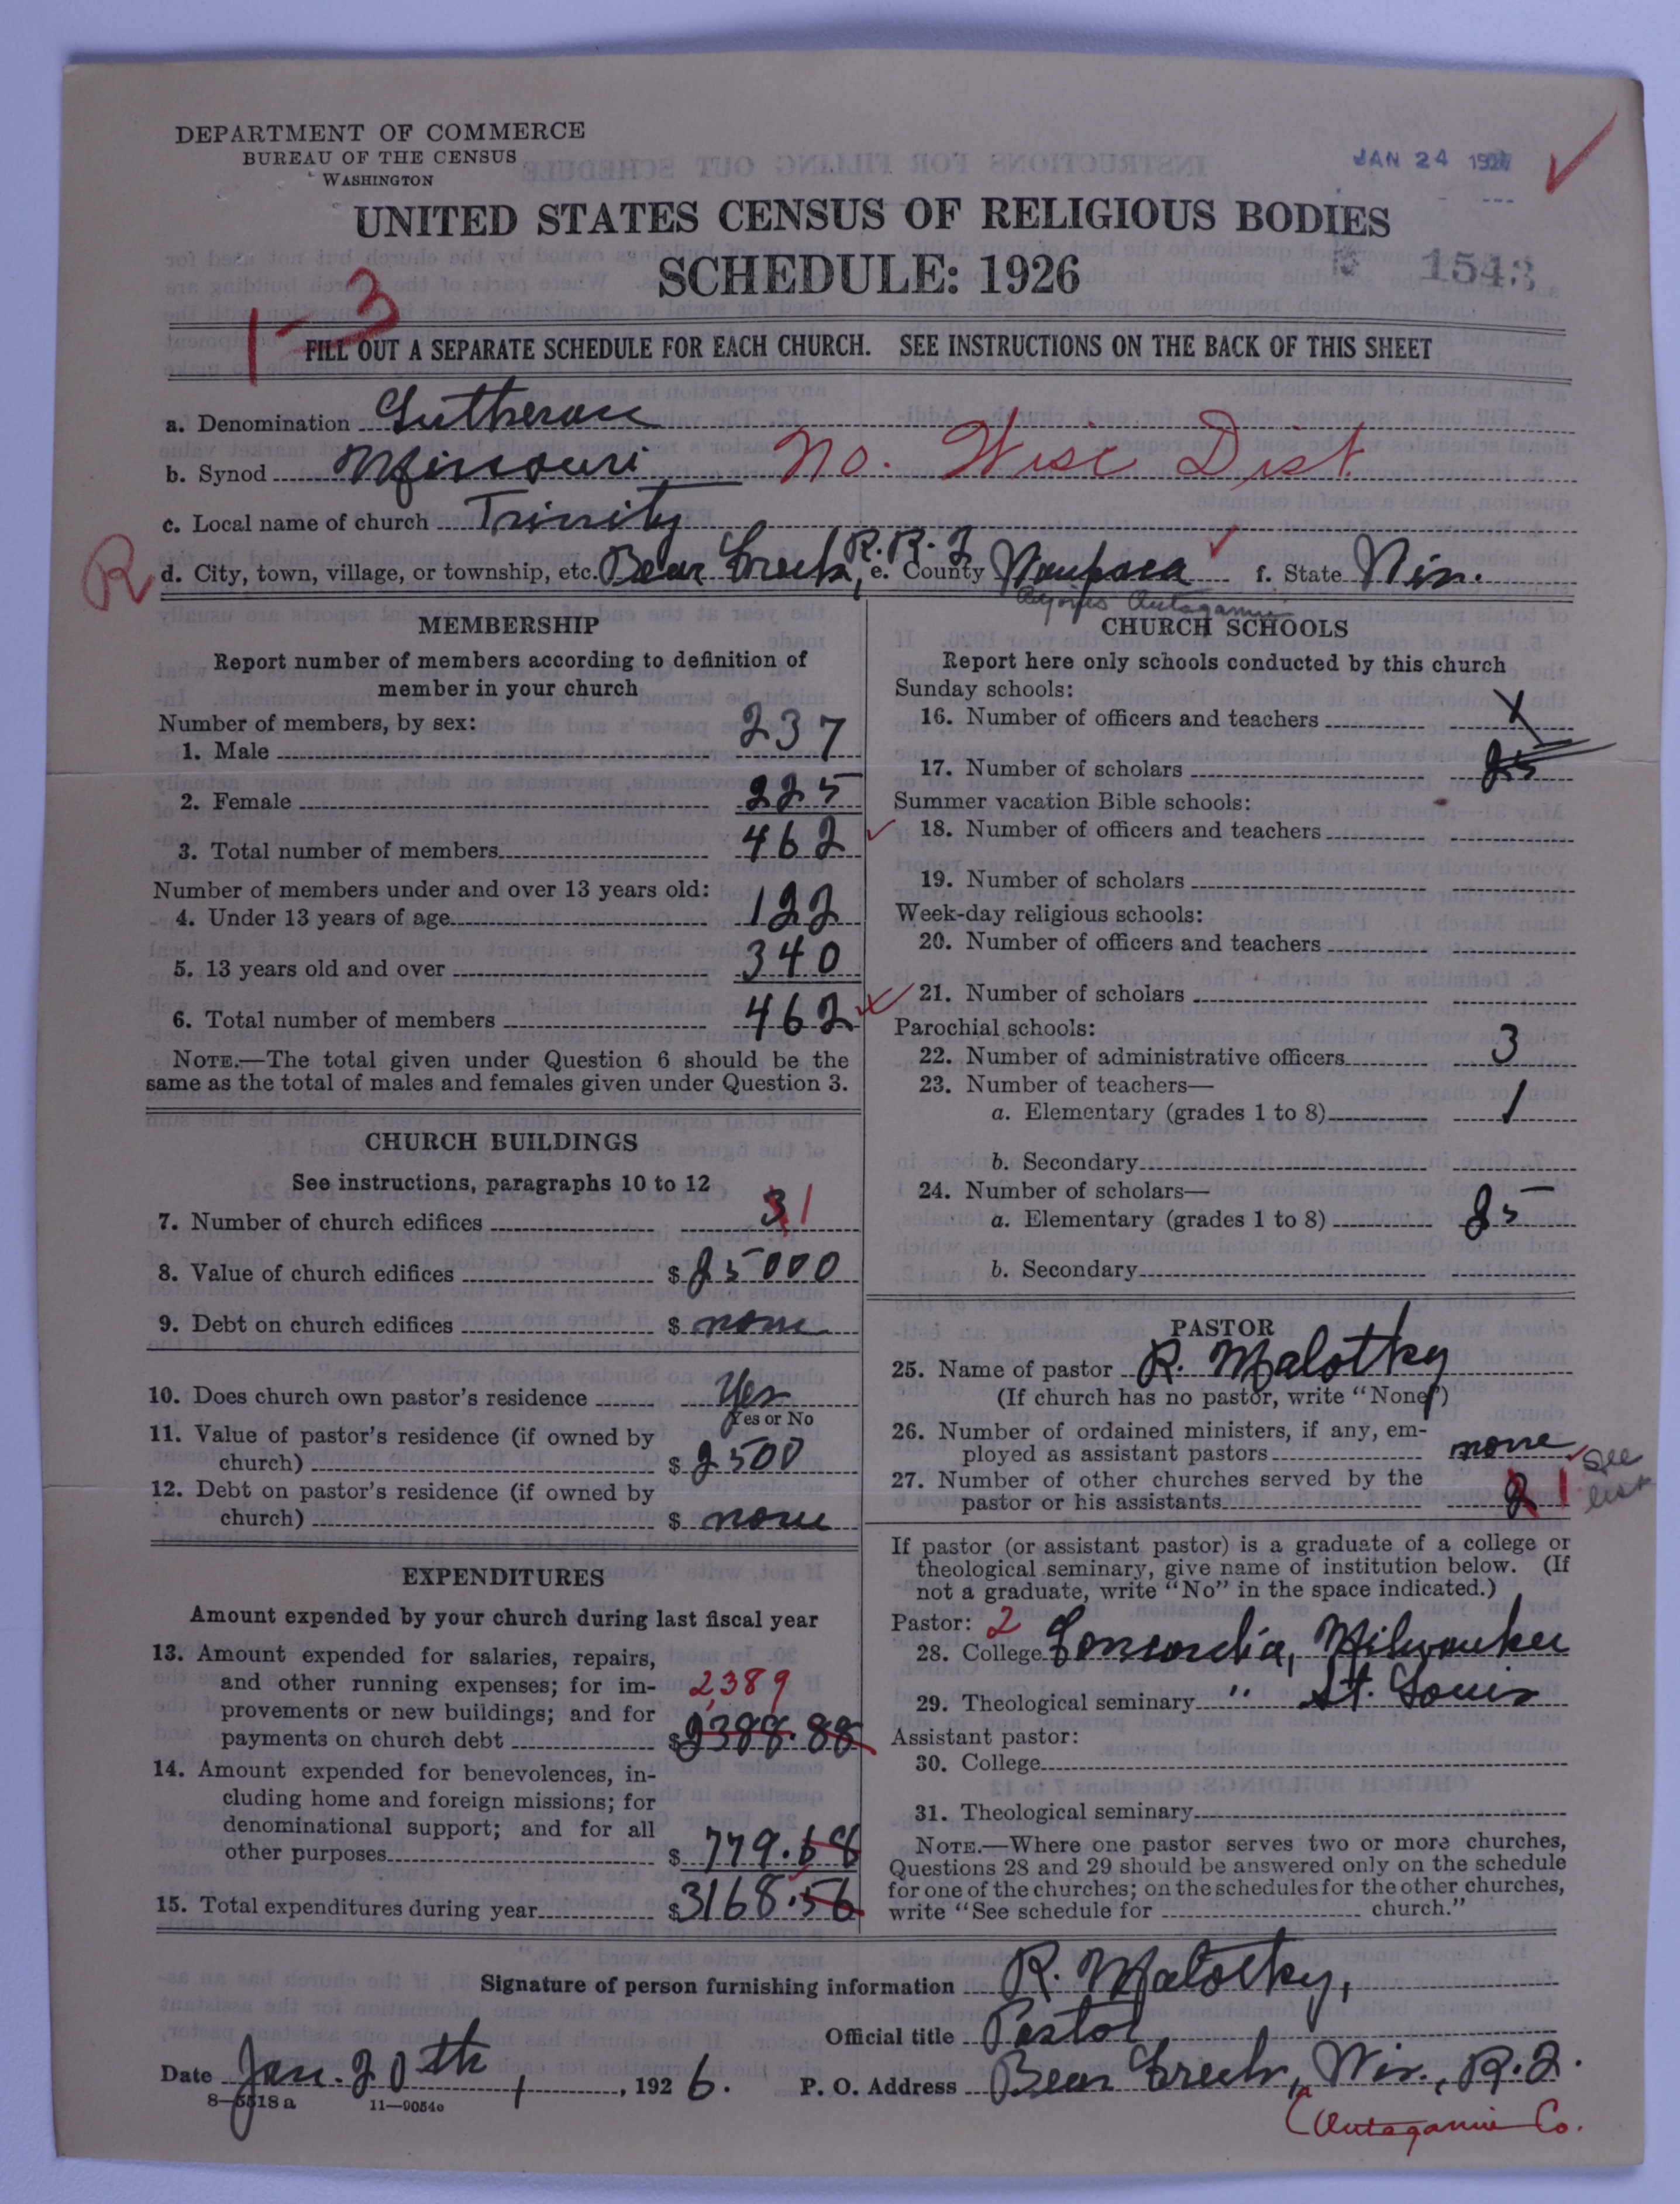 DEPARTMENT OF COMMERCE
BUREAU OF THE CENSUS
WASHINGTON
JAN 24 1927
UNITED STATES CENSUS OF RELIGIOUS BODIES
SCHEDULE: 1926
1543
1-3
FILL OUT A SEPARATE SCHEDULE FOR EACH CHURCH. SEE INSTRUCTIONS ON THE BACK OF THIS SHEET
a. Denomination Lutheran
b. Synod Missouri No. Wisc Dist.
c. Local name of church Trinity
R d. City, town, village, or township, etc. Bear Creek, R.R. 2 e. County Waupaca f. State Wis.
Outagamie
MEMBERSHIP
Report number of members according to definition of
member in your church
Number of members, by sex:
1. Male 237
2. Female 225
3. Total number of members 462
Number of members under and over 13 years old:
4. Under 13 years of age 122
5. 13 years old and over 340
6. Total number of members 462
NOTE.—The total given under Question 6 should be the
same as the total of males and females given under Question 3.
CHURCH BUILDINGS
See instructions, paragraphs 10 to 12
7. Number of church edifices 3 1
8. Value of church edifices $ 25000
9. Debt on church edifices $ none
10. Does church own pastor's residence Yes
Yes or No
11. Value of pastor's residence (if owned by
church) $ 2500
12. Debt on pastor's residence (if owned by
church) $ none
EXPENDITURES
Amount expended by your church during last fiscal year
13. Amount expended for salaries, repairs,
and other running expenses; for im-
provements or new buildings; and for
payments on church debt 2,389
$ 2388.88
14. Amount expended for benevolences, in-
cluding home and foreign missions; for
denominational support; and for all
other purposes $ 779.68
15. Total expenditures during year $ 3168.56
CHURCH SCHOOLS
Report here only schools conducted by this church
Sunday schools:
16. Number of officers and teachers X
17. Number of scholars 25
Summer vacation Bible schools:
18. Number of officers and teachers
19. Number of scholars
Week-day religious schools:
20. Number of officers and teachers
21. Number of scholars
Parochial schools:
22. Number of administrative officers 3
23. Number of teachers—
a. Elementary (grades 1 to 8) 1
b. Secondary
24. Number of scholars—
a. Elementary (grades 1 to 8) 25
b. Secondary
PASTOR
25. Name of pastor R. Malotky
(If church has no pastor, write "None")
26. Number of ordained ministers, if any, em-
ployed as assistant pastors none
27. Number of other churches served by the
pastor or his assistants 2 1 see list
If pastor (or assistant pastor) is a graduate of a college or
theological seminary, give name of institution below. (If
not a graduate, write "No" in the space indicated.)
Pastor: 2
28. College Concordia, Milwaukee
29. Theological seminary " St. Louis
Assistant pastor:
30. College
31. Theological seminary
NOTE.—Where one pastor serves two or more churches,
Questions 28 and 29 should be answered only on the schedule
for one of the churches; on the schedules for the other churches,
write "See schedule for church."
Signature of person furnishing information R. Malotky,
Official title Pastor
Date Jan. 20th, 1926. P. O. Address Bear Creek, Wis., R. 2.
8—5518 a 11—9054c
(Outagamie Co.